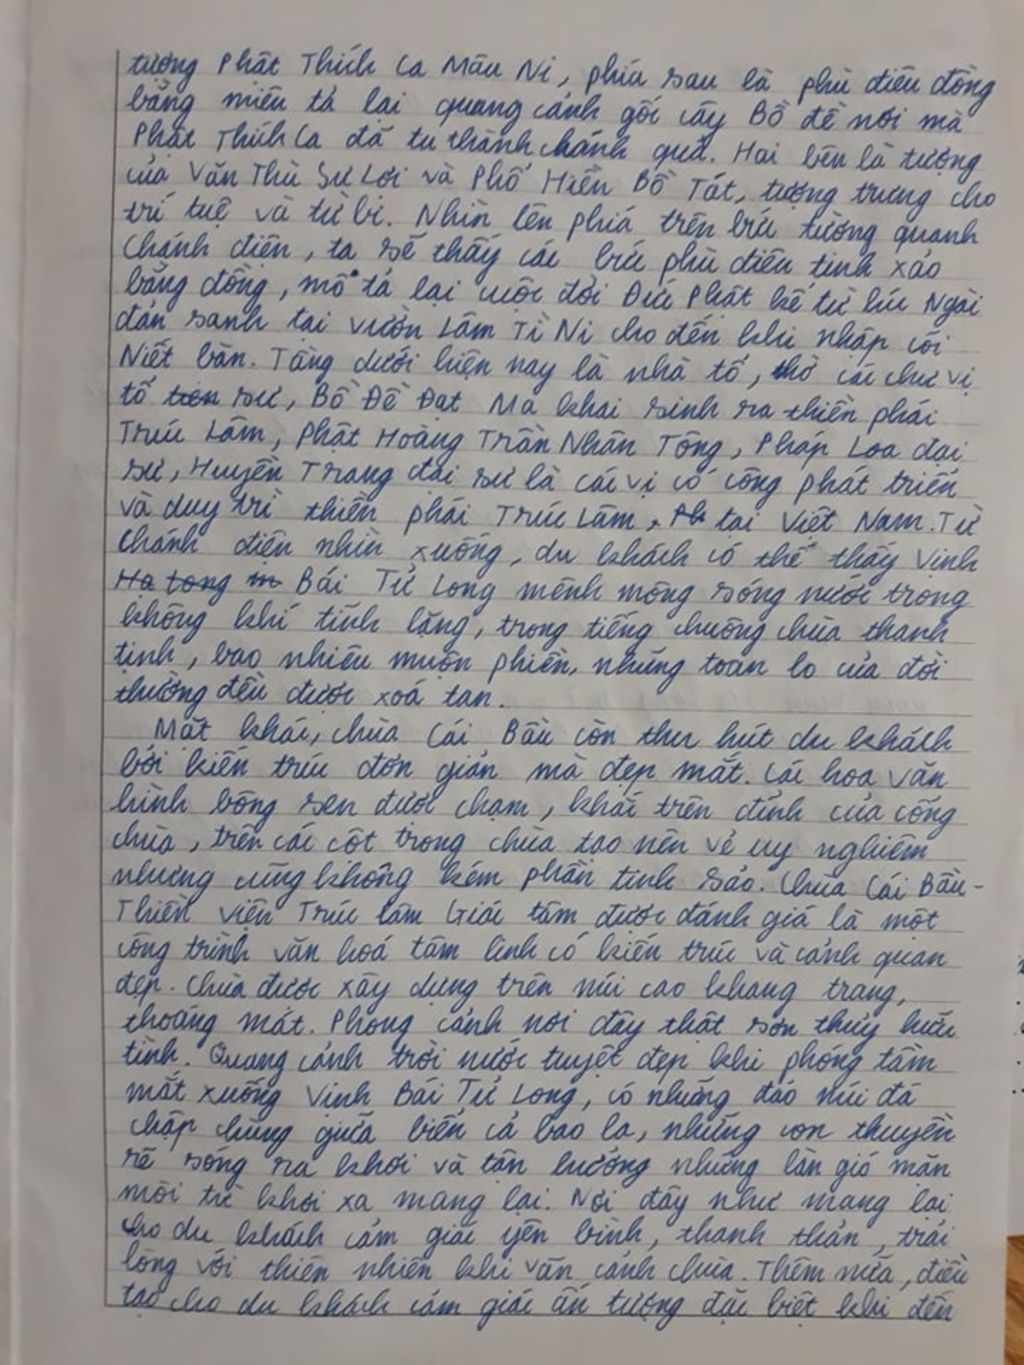 tượng Phật Thích Ca Mâu Ni, phía sau là phù điêu đồng
bằng miêu tả lại quang cảnh gốc cây Bồ đề nơi mà
Phật Thích Ca đã tu thành chánh quả. Hai bên là tượng
của Văn Thù Sư Lợi và Phổ Hiền Bồ Tát, tượng trưng cho
trí tuệ và từ bi. Nhìn lên phía trên bức tường quanh
chánh điện, ta sẽ thấy các bức phù điêu tinh xảo
bằng đồng, mô tả lại cuộc đời Đức Phật kể từ lúc Ngài
đản sanh tại vườn Lâm Tì Ni cho đến khi nhập cõi
Niết bàn. Tầng dưới hiện nay là nhà tổ, thờ các chư vị
tổ tiên sư, Bồ Đề Đạt Ma khai sinh ra thiền phái
Trúc Lâm, Phật Hoàng Trần Nhân Tông, Pháp Loa đại
sư, Huyền Trang đại sư là các vị có công phát triển
và duy trì thiền phái Trúc Lâm, Ph tại Việt Nam. Từ
chánh điện nhìn xuống, du khách có thể thấy Vịnh
Hạ Long Bái Tử Long mênh mông sóng nước trong
không khí tĩnh lặng, trong tiếng chuông chùa thanh
tịnh, bao nhiêu muộn phiền, những toan lo của đời
thường đều được xoá tan.
Mặt khác, chùa Cái Bầu còn thu hút du khách
bởi kiến trúc đơn giản mà đẹp mắt. Các hoa văn
hình bông sen được chạm, khắc trên đỉnh của cổng
chùa, trên các cột trong chùa tạo nên vẻ uy nghiêm
nhưng cũng không kém phần tinh sảo. Chùa Cái Bầu -
Thiền viện Trúc lâm Giác tâm được đánh giá là một
công trình văn hoá tâm linh có kiến trúc và cảnh quan
đẹp. Chùa được xây dựng trên núi cao khang trang,
thoáng mát. Phong cảnh nơi đây thật sơn thủy hữu
tình. Quang cảnh trời nước tuyệt đẹp khi phóng tầm
mắt xuống Vịnh Bái Tử Long, có những đảo núi đá
chập chùng giữa biển cả bao la, những con thuyền
rẽ sóng ra khơi và tận hưởng những làn gió mặn
mòi từ khơi xa mang lại. Nơi đây như mang lại
cho du khách cảm giác yên bình, thanh thản, trải
lòng với thiên nhiên khi vãn cảnh chùa. Thêm nữa, điều
tạo cho du khách cảm giác ấn tượng đặc biệt khi đến